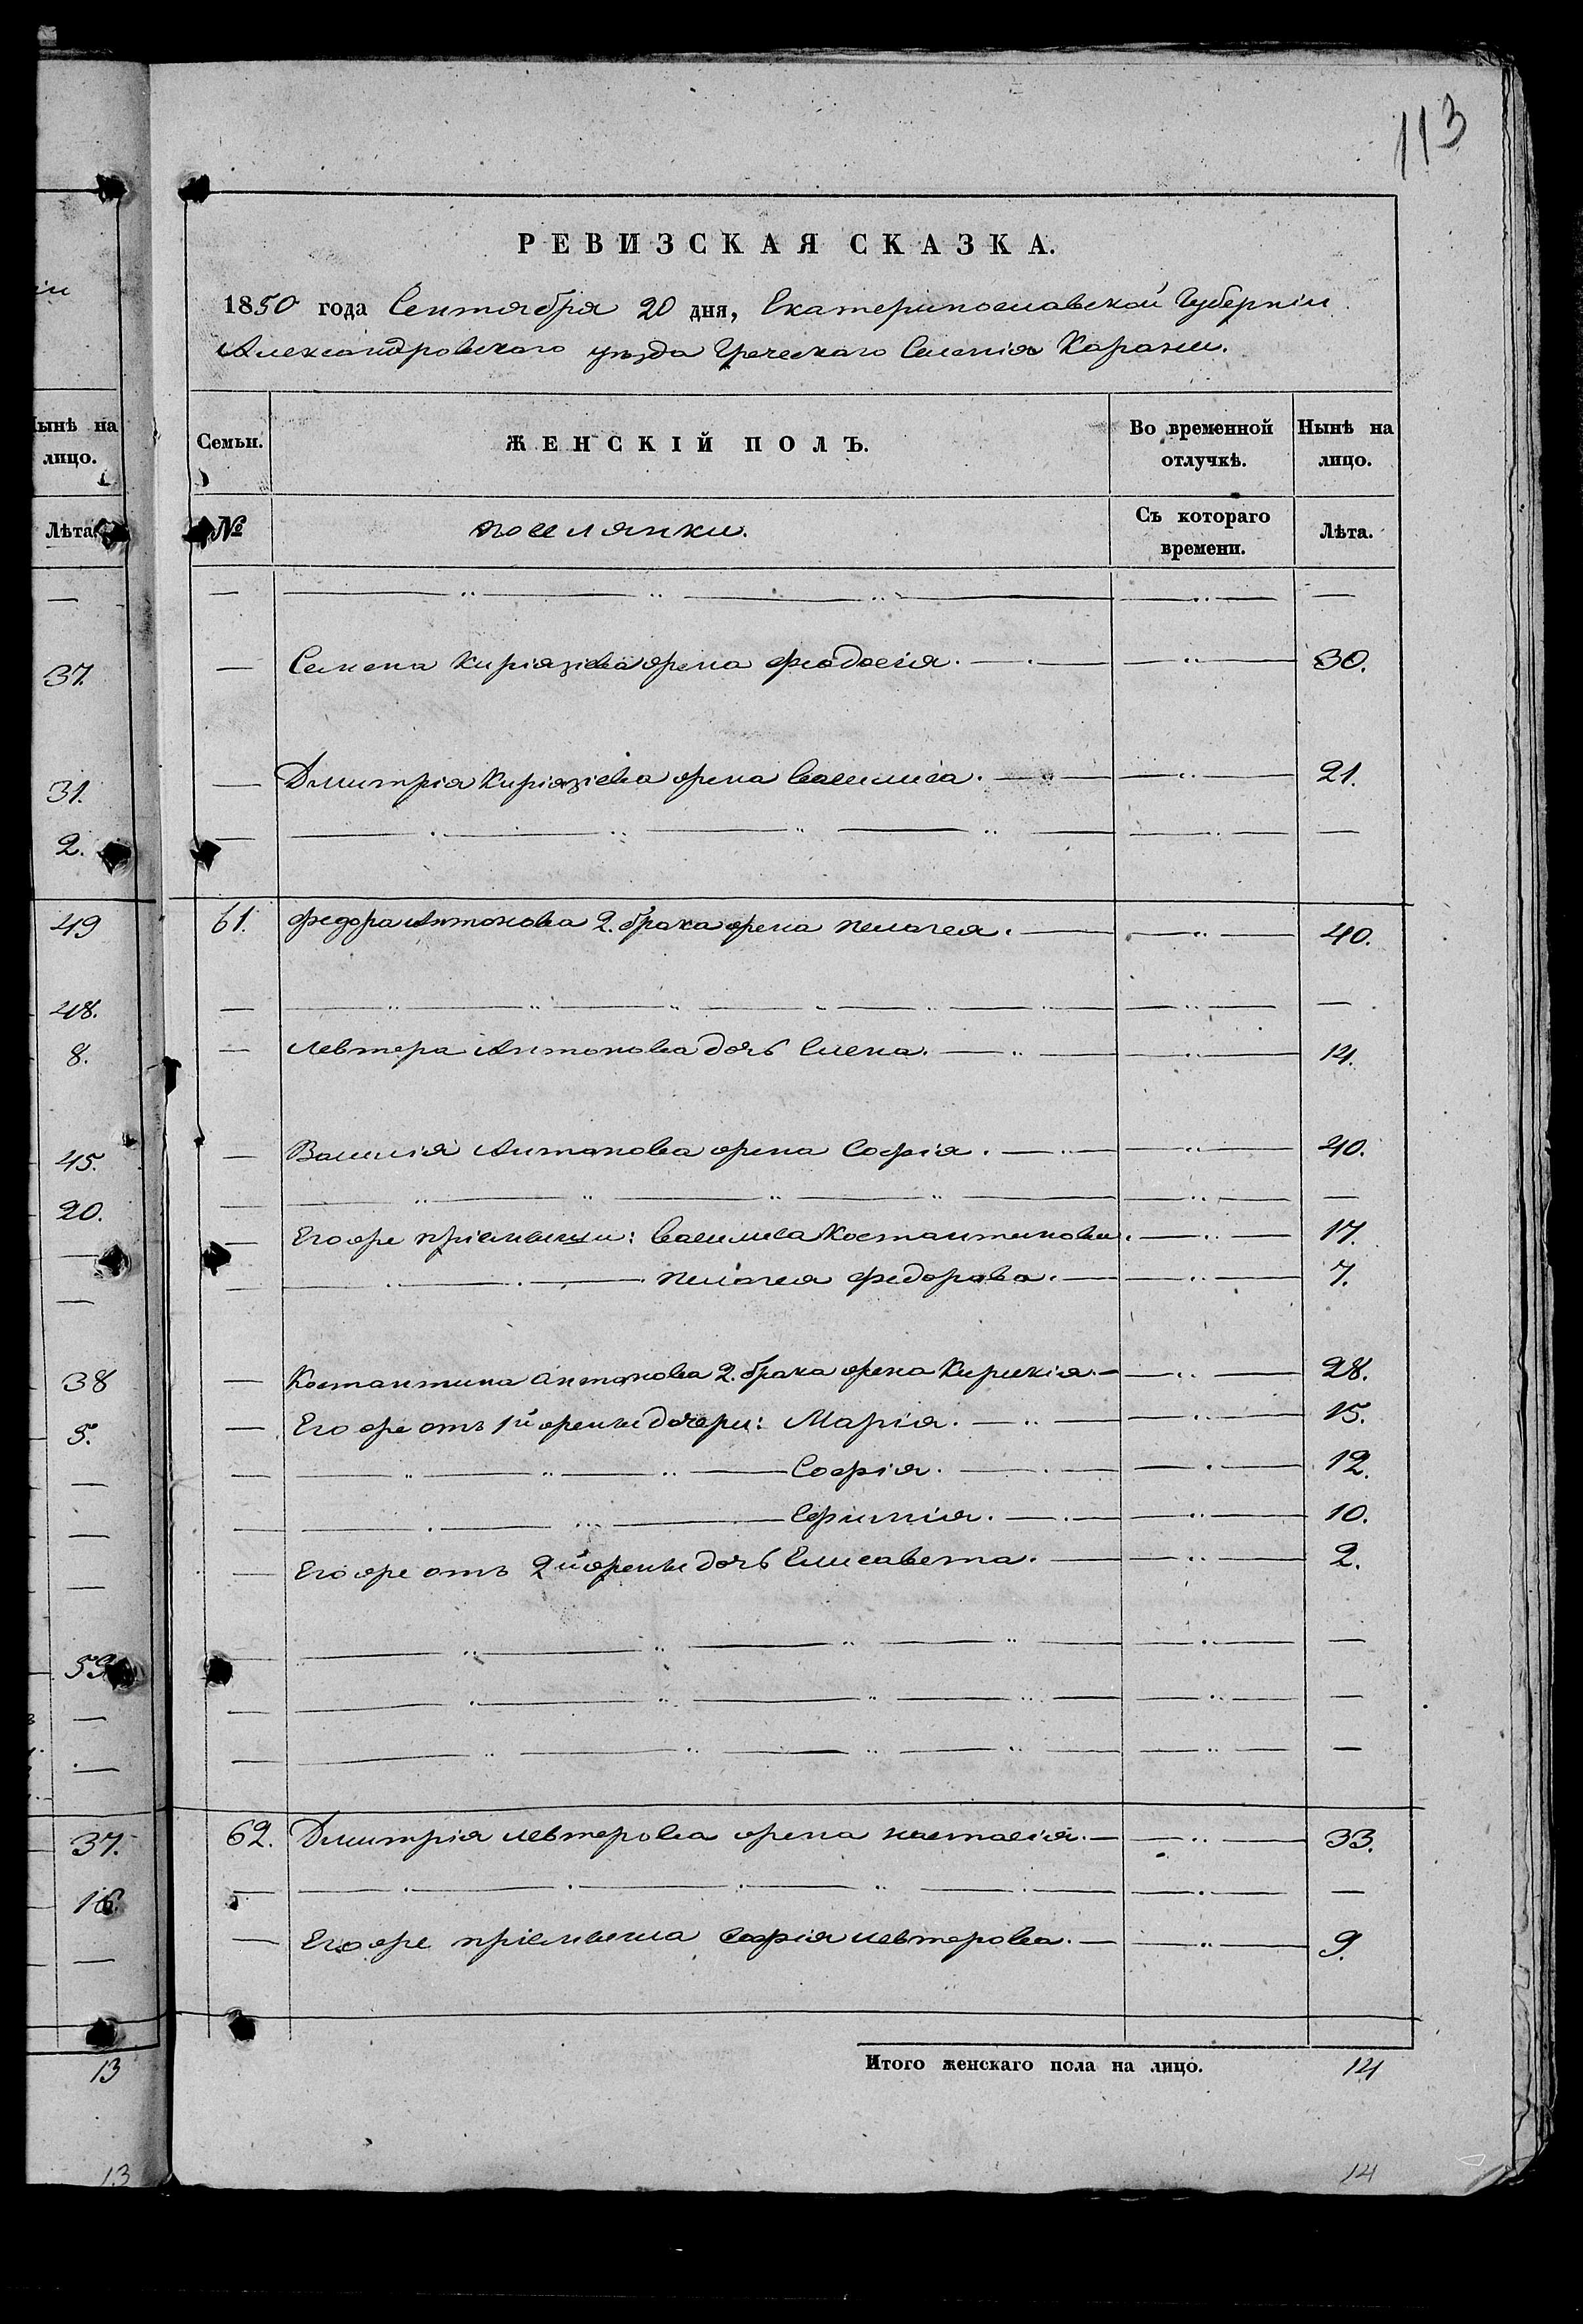 113
РЕВИЗСКАЯ СКАЗКА.
1850 года Сентября 20 дня, Екатеринославской Губерніи
Александровскаго уѣзда Греческаго Селенія Карани.
Нынѣ на
лицо.
Лѣта
37.
31.
2.
49
48.
8.
45.
20.
38
5.
53
37.
16.
13
13
Семьи. ЖЕНСКІЙ ПОЛЪ. Во временной отлучкѣ. Нынѣ на лицо.
№ поселянки. Съ котораго времени. Лѣта.
— Семена Киріязіева жена Феодосія. — 30.
— Дмитрія Киріязіева жена Василиса. — 21.
61. Федора Антонова 2. брака жена Пелагея. — 40.
— Левтера Антонова дочь Елена. — 14.
— Василія Антонова жена Софія. — 40.
— Его же пріемыши: Василиса Костантинова. — 17.
— Пелагея Федорова. — 7.
— Костантина Антонова 2. брака жена Кирикія. — 28.
— Его же отъ 1й жены дочери: Марія. — 15.
— Софія. — 12.
— Ефимія. — 10.
— Его же отъ 2й жены дочь Елисавета. — 2.
62. Дмитрія Левтерова жена Настасія. — 33.
— Его же пріемыша Софія Левтерова. — 9.
Итого женскаго пола на лицо. 14
14